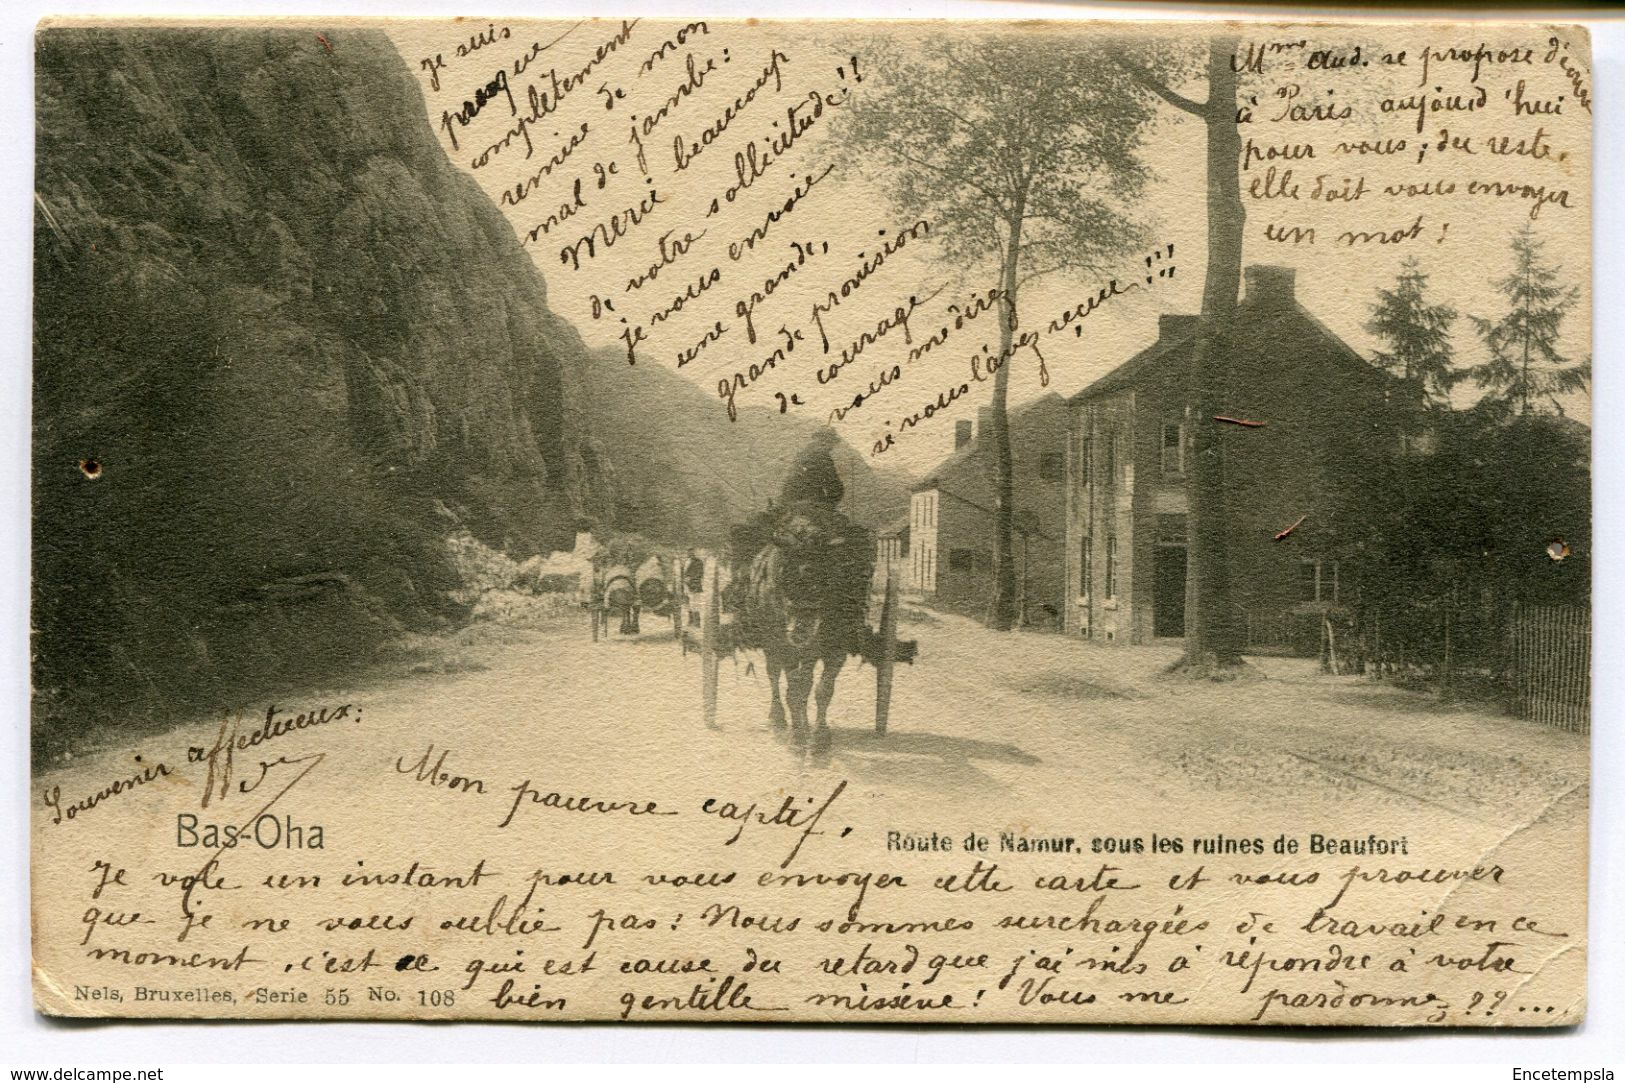 Mon pauvre captif,
Je vole un instant pour vous envoyer cette carte et vous prouver
que je ne vous oublie pas! Nous sommes surchargées de travail en ce
moment, c'est ce qui est cause du retard que j'ai mis à répondre à votre
bien gentille missive! Vous me pardonnez??...
Je suis
presque
complètement
remise de mon
mal de jambe:
Merci beaucoup
de votre sollicitude!!
je vous envoie
une grande,
grande provision
de courage
vous me direz
si vous l'avez reçue!!!
Mme Aud. se propose d'écrire
à Paris aujourd'hui
pour vous; du reste,
elle doit vous envoyer
un mot!
Souvenir affectueux:
Bas-Oha
Route de Namur, sous les ruines de Beaufort
Nels, Bruxelles, Serie 55 No. 108
delcampe.net
Encetempsla